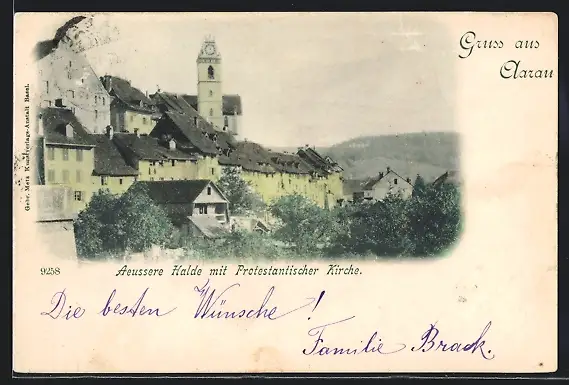 Gruss aus
Aarau
Gebr. Metz Kunstverlags-Anstalt Basel.
9258
Aeussere Halde mit Protestantischer Kirche.
Die besten Wünsche!
Familie Brack.